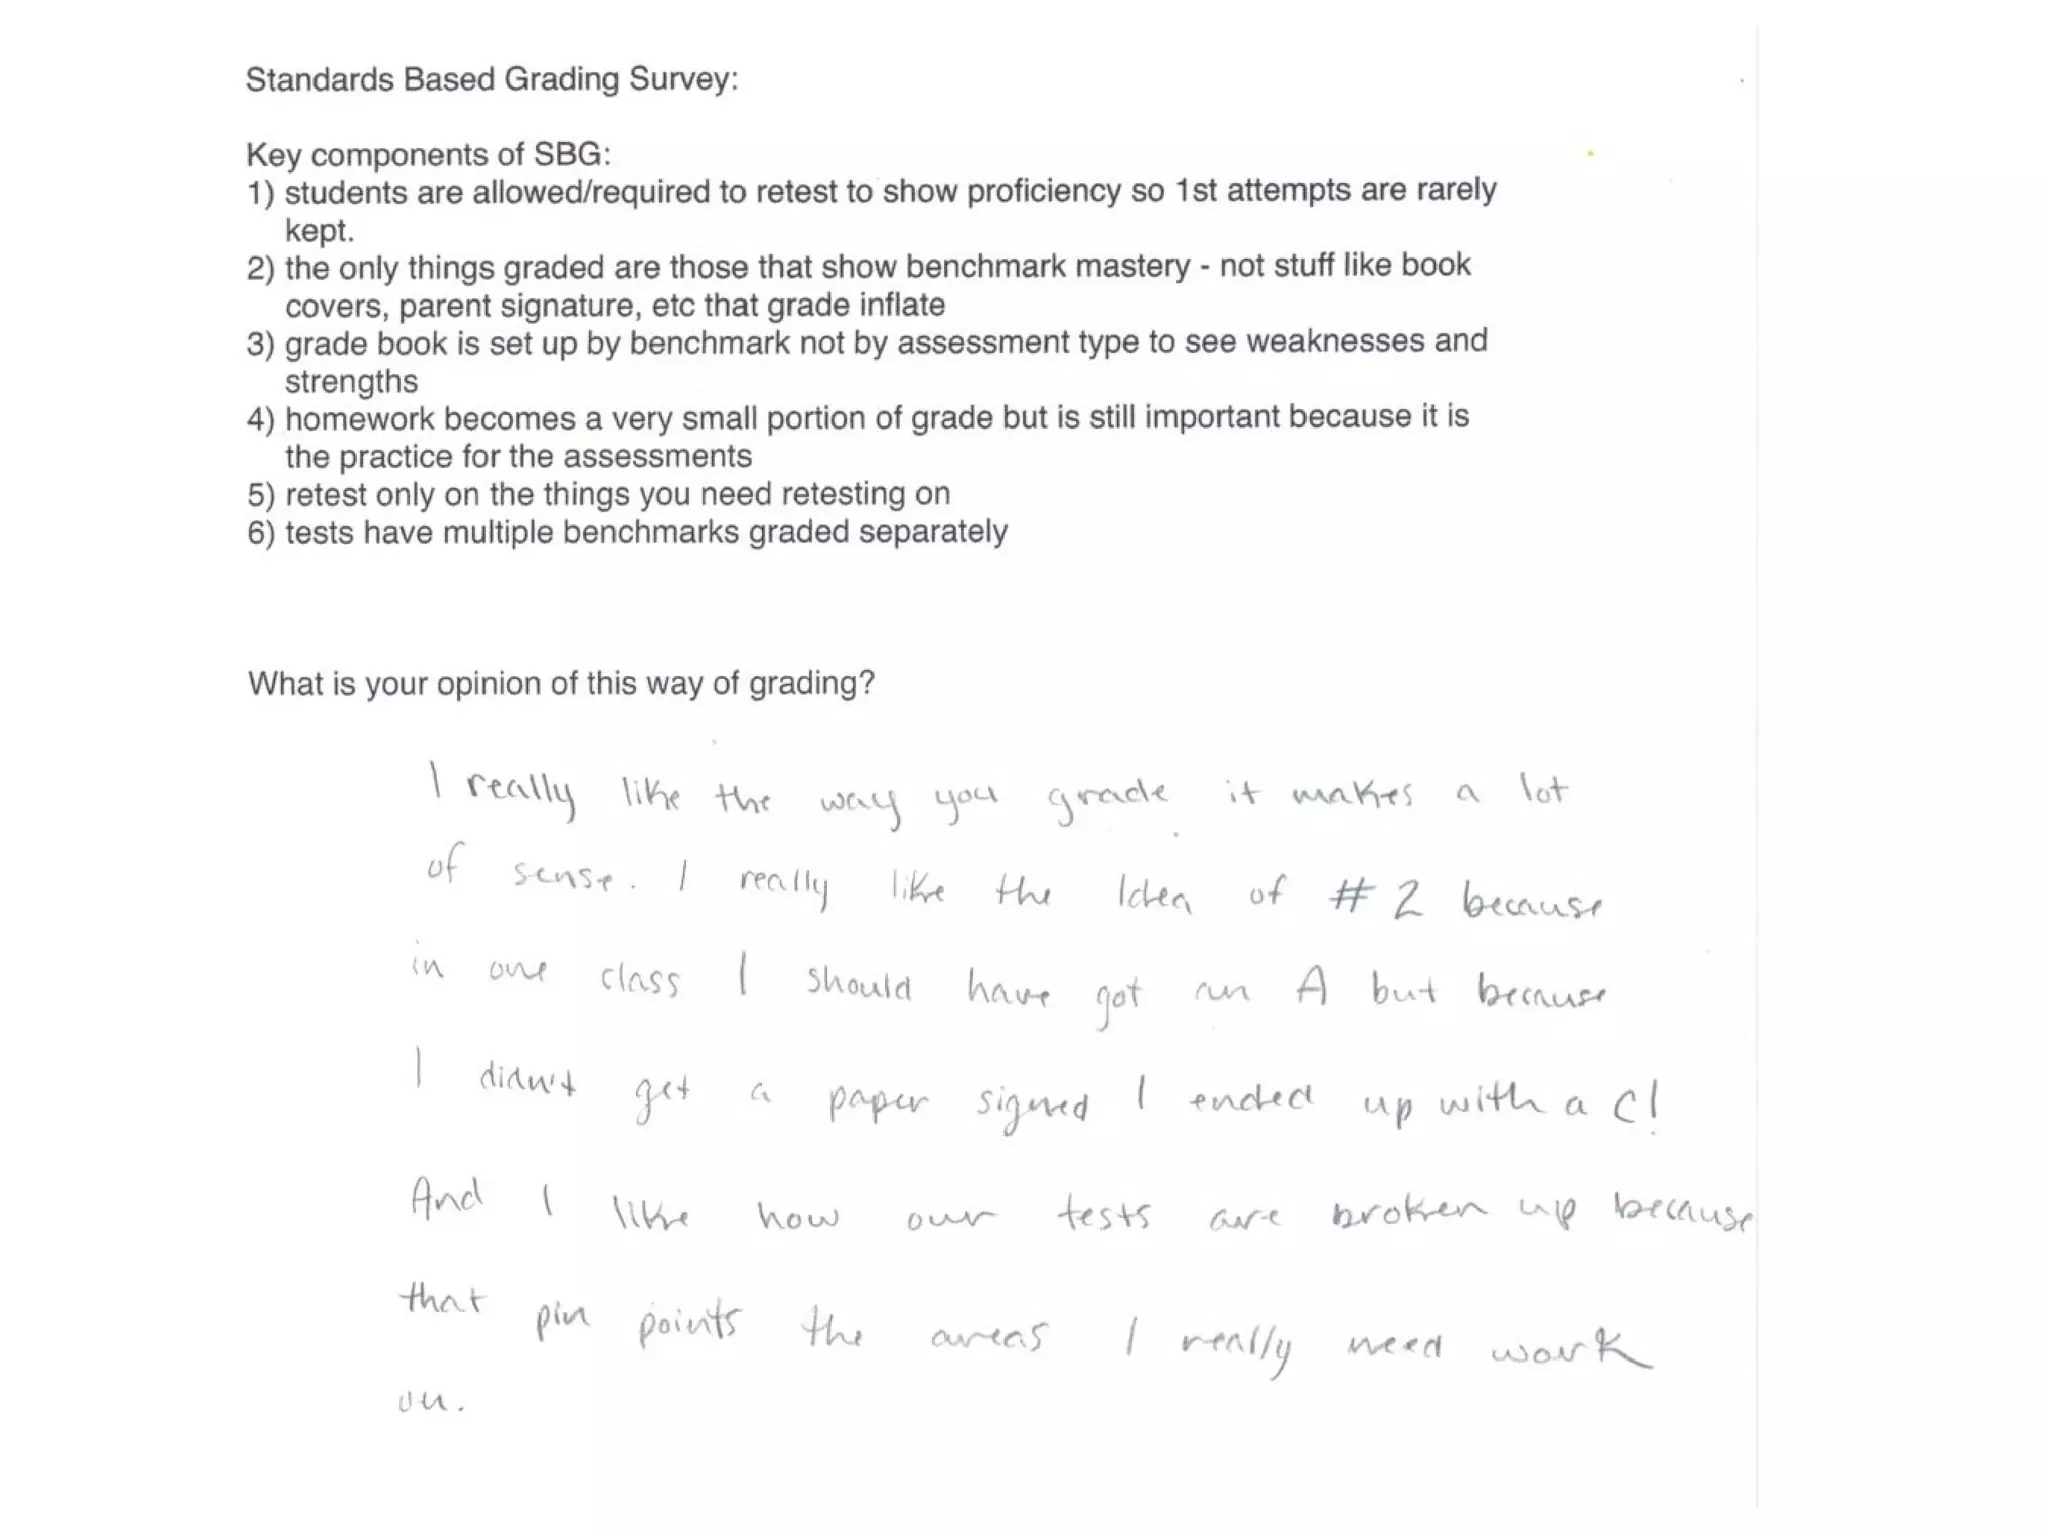 Standards Based Grading Survey:
Key components of SBG:
1) students are allowed/required to retest to show proficiency so 1st attempts are rarely
kept.
2) the only things graded are those that show benchmark mastery - not stuff like book
covers, parent signature, etc that grade inflate
3) grade book is set up by benchmark not by assessment type to see weaknesses and
strengths
4) homework becomes a very small portion of grade but is still important because it is
the practice for the assessments
5) retest only on the things you need retesting on
6) tests have multiple benchmarks graded separately
What is your opinion of this way of grading?
I really like the way you grade it makes a lot
of sense. I really like the Idea of # 2 because
in one class I should have got an A but because
I didn't get a paper signed I ended up with a C!
And I like how our tests are broken up because
that pin points the areas I really need work
on.